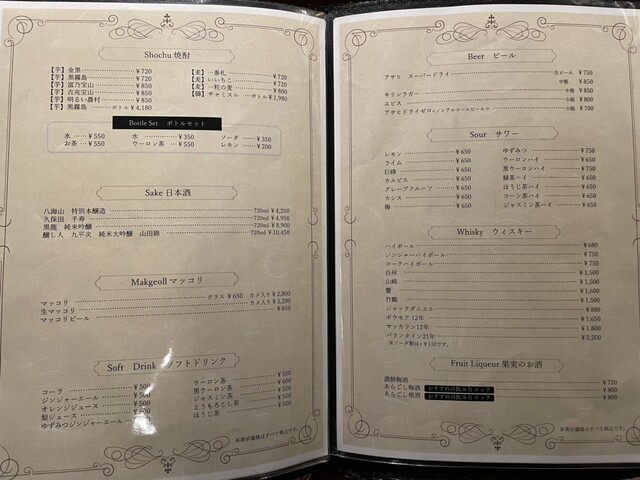 Shochu 焼酎
【芋】金黒 ¥720
【芋】黒霧島 ¥720
【芋】富乃宝山 ¥850
【芋】吉兆宝山 ¥850
【芋】明るい農村 ¥850
【芋】黒霧島 ボトル¥4,180
【麦】一番札 ¥720
【麦】いいちこ ¥720
【麦】一粒の麦 ¥800
【韓】チャミスル ボトル¥1,980
Bottle Set ボトルセット
氷 ¥550
お茶 ¥550
水 ¥350
ウーロン茶 ¥550
ソーダ ¥350
レモン ¥200
Sake 日本酒
八海山 特別本醸造 720ml ¥4,200
久保田 千寿 720ml ¥4,950
黒龍 純米吟醸 720ml ¥8,900
醸し人 九平次 純米大吟醸 山田錦 720ml ¥10,450
Makgeoll マッコリ
マッコリ グラス ¥650 カメ入り ¥2,800
生マッコリ カメ入り ¥3,200
マッコリビール ¥850
Soft Drink ソフトドリンク
コーラ ¥500
ジンジャーエール ¥500
オレンジジュース ¥500
梨ジュース ¥500
ゆずみつジンジャーエール
ウーロン茶 ¥500
緑茶 ¥600
黒ウーロン茶 ¥500
ジャスミン茶 ¥500
とうもろこし茶 ¥500
ほうじ茶
※表示価格はすべて税込です。
Beer ビール
アサヒ スーパードライ 生ビール ¥750
中瓶 ¥850
キリンラガー 中瓶 ¥850
エビス 小瓶 ¥800
アサヒドライゼロ<ノンアルコールビール> 小瓶 ¥700
Sour サワー
レモン ¥650
ライム ¥650
巨峰 ¥650
カルピス ¥650
グレープフルーツ ¥650
カシス ¥650
梅 ¥650
ゆずみつ ¥750
ウーロンハイ ¥650
黒ウーロンハイ ¥750
緑茶ハイ ¥650
ほうじ茶ハイ ¥650
コーン茶ハイ ¥650
ジャスミン茶ハイ ¥650
Whisky ウィスキー
ハイボール ¥680
ジンジャーハイボール ¥750
コークハイボール ¥750
白州 ¥1,500
山崎 ¥1,500
響 ¥1,600
竹鶴 ¥1,500
ジャックダニエル ¥880
ボウモア 12年 ¥1,650
マッカラン12年 ¥1,800
バランタイン21年 ¥2,200
※ソーダ割は+¥110です。
Fruit Liqueur 果実のお酒
濃醇梅酒 ¥720
あらごし梅酒 おすすめの飲み方 ロック ¥800
あらごし桃酒 おすすめの飲み方 ロック ¥800
※表示価格はすべて税込です。